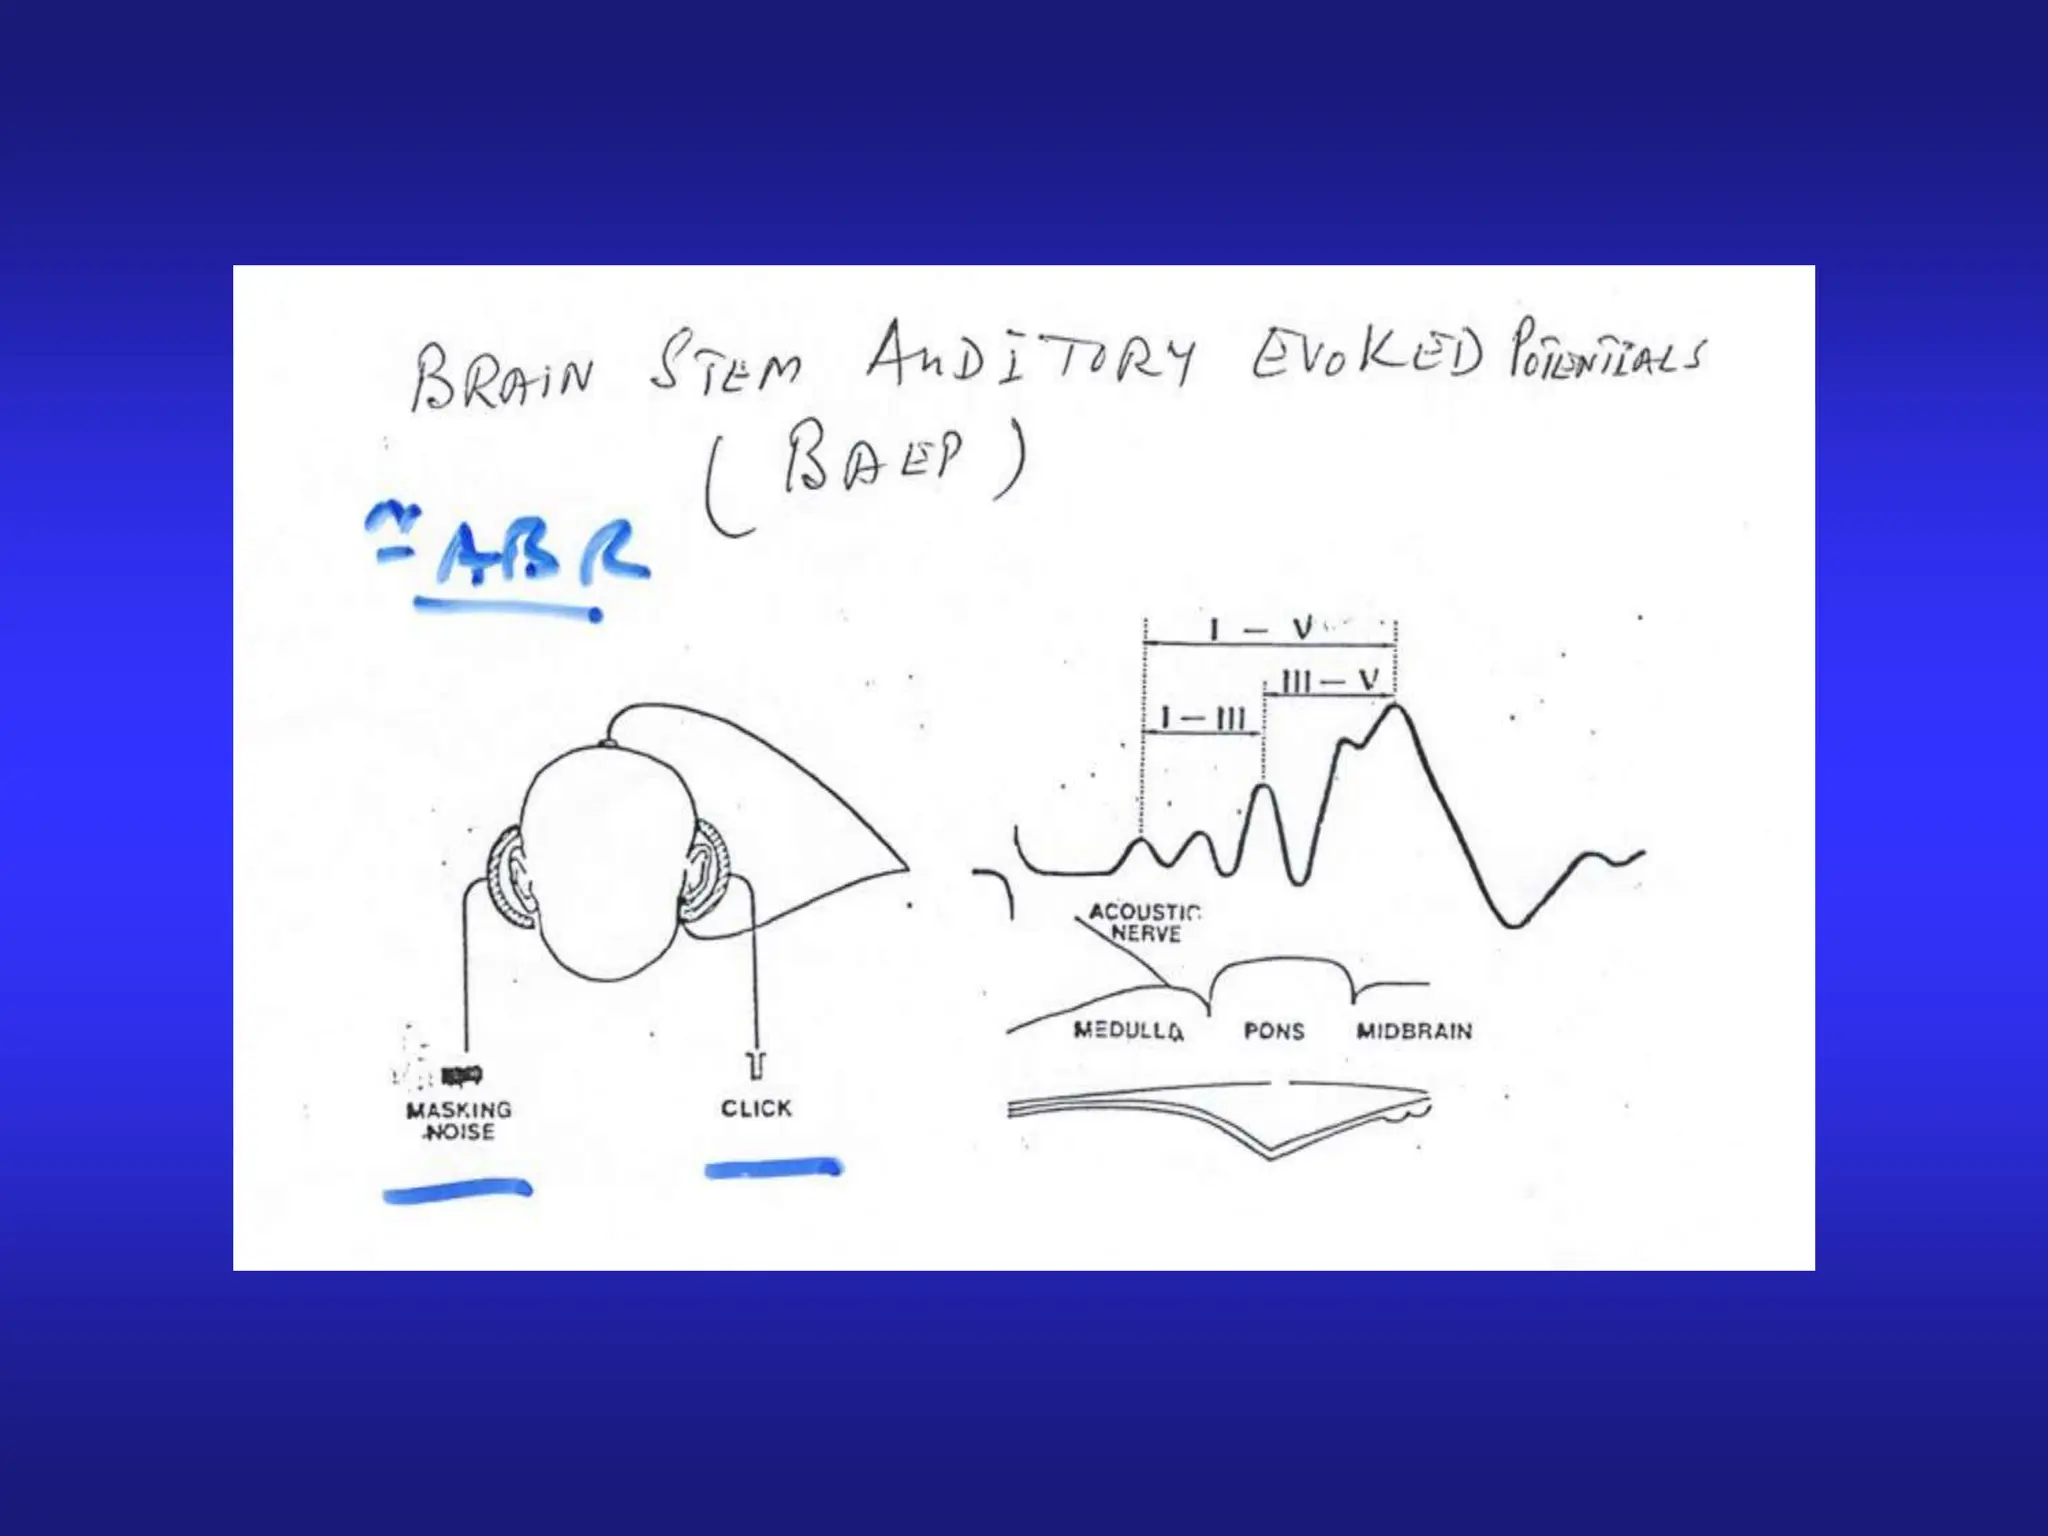 BRAIN STEM AUDITORY EVOKED POTENTIALS
(BAEP)
≅ ABR
I — V
III — V
I — III
ACOUSTIC
NERVE
MEDULLA PONS MIDBRAIN
MASKING
NOISE
CLICK